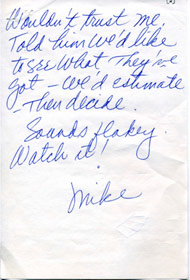 (2)
Wouldn't trust me.
Told him we'd like
to see what they've
got – we'd estimate
– then decide.
Sounds flakey.
Watch it!
Mike